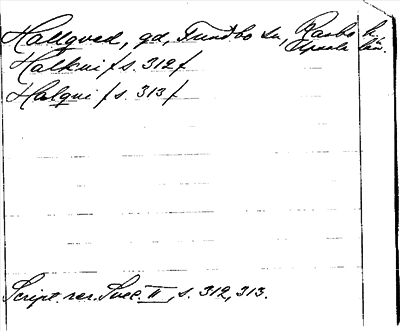 Hallqved, gd, Tundbo sn, Rasbo h.
Upsala län.
Halkui /s. 312/
Halqui /s. 313/
Script. rer. Svec. II, s. 312, 313.